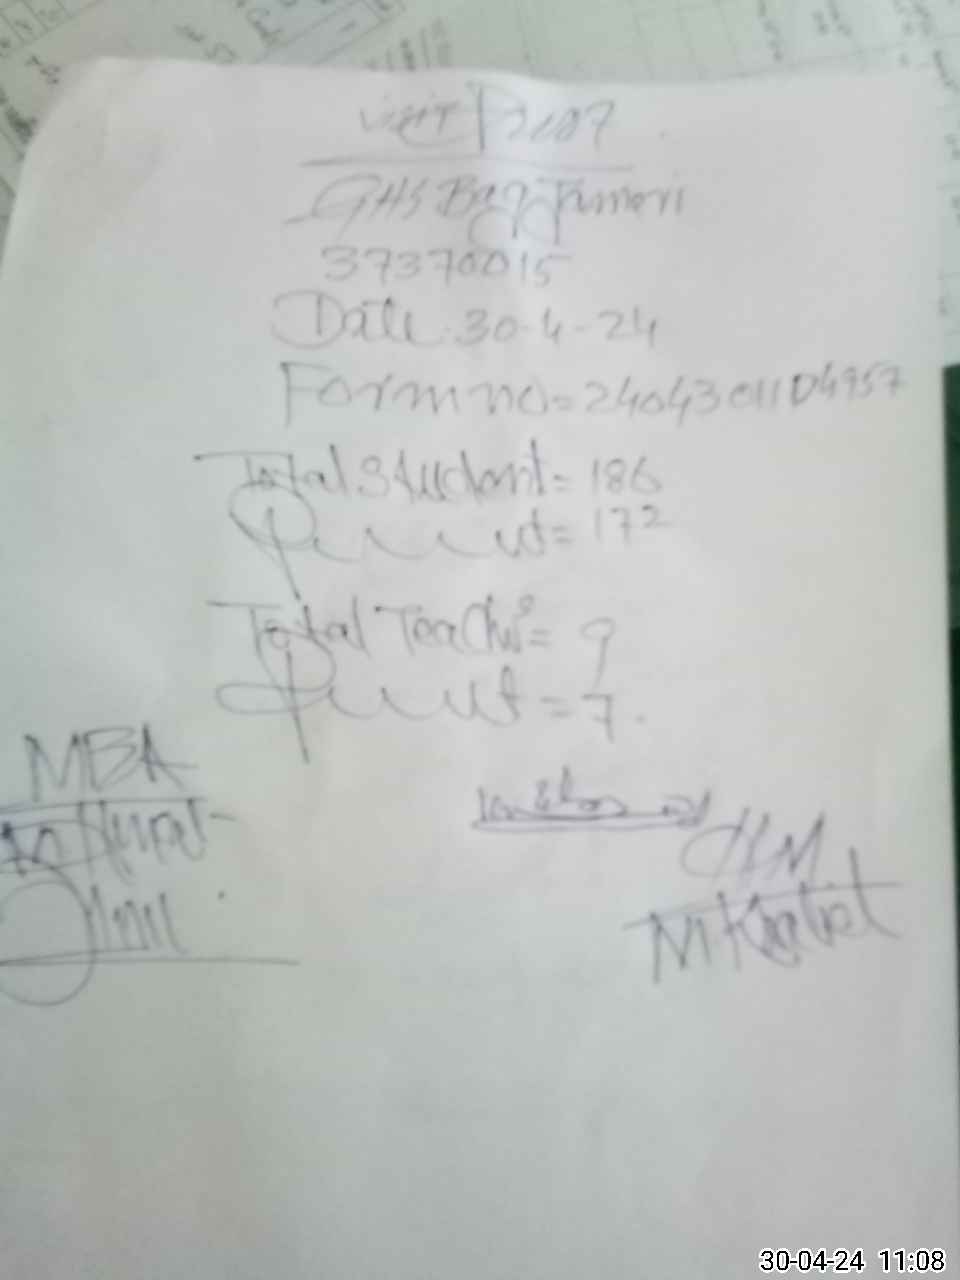 visit Proof
GHS Bagg Jameri
37370015
Date 30-4-24
Form no = 2404301104957
Total Student = 186
Present = 172
Total Teacher = 9
Present = 7.
MBA
HM
M Khalid
30-04-24 11:08